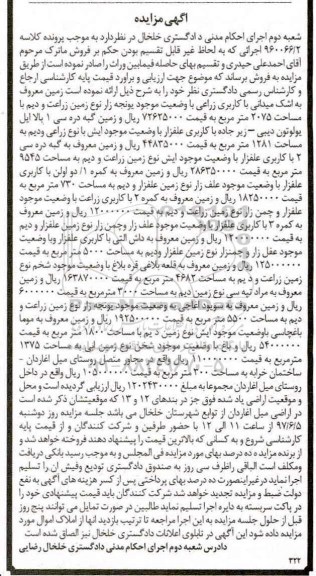 آگهی مزایده
شعبه دوم اجرای احکام مدنی دادگستری خلخال در نظردارد به موجب پرونده کلاسه
۹۶۰۰۶۶/۲ اجرائی که به لحاظ غیر قابل تقسیم بودن حکم بر فروش ماترک مرحوم
آقای احمدعلی حیدری و تقسیم بهای حاصله فیمابین وراث را صادر نموده است از طریق
مزایده به فروش برساند که موضوع جهت ارزیابی و برآورد قیمت پایه کارشناسی ارجاع
و کارشناس رسمی دادگستری نظر خود را به شرح ذیل ارائه نموده است زمین معروف
به اشک میدانی با کاربری زراعی با وضعیت موجود یونجه زار نوع زمین زراعت و دیم با
مساحت ۲۰۷۵ متر مربع به قیمت ۷۲۶۲۵۰۰۰ ریال و زمین گبه دره سی ۱ بالا ایل
یولوتون دیبی – زیر جاده با کاربری علفزار با وضعیت موجود آیش با نوع زراعی ودیم به
مساحت ۱۲۸۱ متر مربع به قیمت ۴۴۸۳۵۰۰۰ ریال و زمین معروف به گبه دره سی
۲ با کاربری علفزار با وضعیت موجود آیش نوع زمین زراعت و دیم به مساحت ۹۵۴۵
متر مربع به قیمت ۲۸۶۳۵۰۰۰۰ ریال و زمین معروف به کمره ۱/ دو اولن با کاربری
علفزار با وضعیت موجود علف زار نوع زمین علفزار و دیم به مساحت ۷۳۰ متر مربع به
قیمت ۱۸۲۵۰۰۰۰ ریال و زمین معروف به کمره ۲ با کاربری زراعت با وضعیت موجود
علفزار و چمن زار نوع زمین زراعت و دیم به قیمت ۱۲۰۰۰۰۰۰ ریال و زمین معروف
به کمره ۳ با کاربری علفزار با وضعیت موجود علف زار وچمن زار نوع زمین علفزار و دیم
به قیمت ریال و زمین معروف به داش آلتی با کاربری علفزار وبا وضعیت
موجود علف زار و چمنزار نوع زمین علفزار ودیم به مساحت ۵۰۰۰ متر مربع به قیمت
۱۲۵۰۰۰۰۰۰ ریال و زمین معروف به قلعه بلاغی قره بلاغ با وضعیت موجود شخم نوع
زمین زراعت و دیم به مساحت ۴۶۸۲ متر مربع به قیمت ۱۶۳۸۷۰۰۰۰ ریال و زمین
معروف به مراد تپه سی نوع زمین دیم به مساحت ۳۰۰۰ مترمربع به قیمت ۶۰۰۰۰۰۰۰
ریال و زمین معروف به سویود آغاجی به وضعیت موجود یونجه زار نوع زمین زراعت و
دیم به مساحت ۵۵۰۰ متر مربع به قیمت ۱۹۲۵۰۰۰۰۰ ریال و زمین معروف به موما
باغچاسی باوضعیت موجود آیش نوع زمین دیم با مساحت ۱۸۰۰ متر مربع به قیمت
۵۴۰۰۰۰۰۰ ریال و باغ با وضعیت موجود شخن نوع زمین آبی به مساحت ۱۳۷۵
مترمربع به قیمت ۱۱۰۰۰۰۰۰۰ ریال واقع در مجاور متصل روستای میل آغاردان -
ساختمان خرابه به مساحت ۳۰۰ متر مربع به قیمت ۱۰۵۰۰۰۰۰۰ ریال واقع در داخل
روستای میل اغاردان مجموعا به مبلغ ۱۲۰۲۴۳۰۰۰۰ ریال ارزیابی گردیده است و محل
و موقعیت اراضی یاد شده فوق جز در بندهای ۱۲ و ۱۳ که موقعیتشان ذکر شده است
در اراضی میل اغاردان از توابع شهرستان خلخال می باشد جلسه مزایده روز دوشنبه
۹۷/۶/۵ از ساعت ۱۱ الی ۱۲ با حضور طرفین و شرکت کنندگان و از قیمت پایه
کارشناسی شروع و به کسانی که بالاترین قیمت را پیشنهاد دهند فروخته خواهد شد و
از برنده مزایده ده درصد بهای مورد مزایده فی المجلس و به موجب رسید بانکی دریافت
ومکلف است الباقی راظرف سی روز به صندوق دادگستری تودیع وفیش آن را تسلیم
اجرا نماید درغیراینصورت ده درصد بهای پرداختی پس از کسر هزینه های آگهی به نفع
دولت ضبط و مزایده تجدید خواهد شد شرکت کنندگان باید قیمت پیشنهادی خود را
در پاکت سربسته به دایره اجرا تسلیم نماید طالبین در صورت تمایل می توانند پنج روز
قبل از حلول جلسه مزایده به این اجرا مراجعه تا ترتیب بازدید انها از املاک اموال مورد
مزایده داده شود این آگهی در تابلوی اعلانات دادگستری خلخال نیز الصاق شده است
دادرس شعبه دوم اجرای احکام مدنی دادگستری خلخال رضایی
۳۲۲